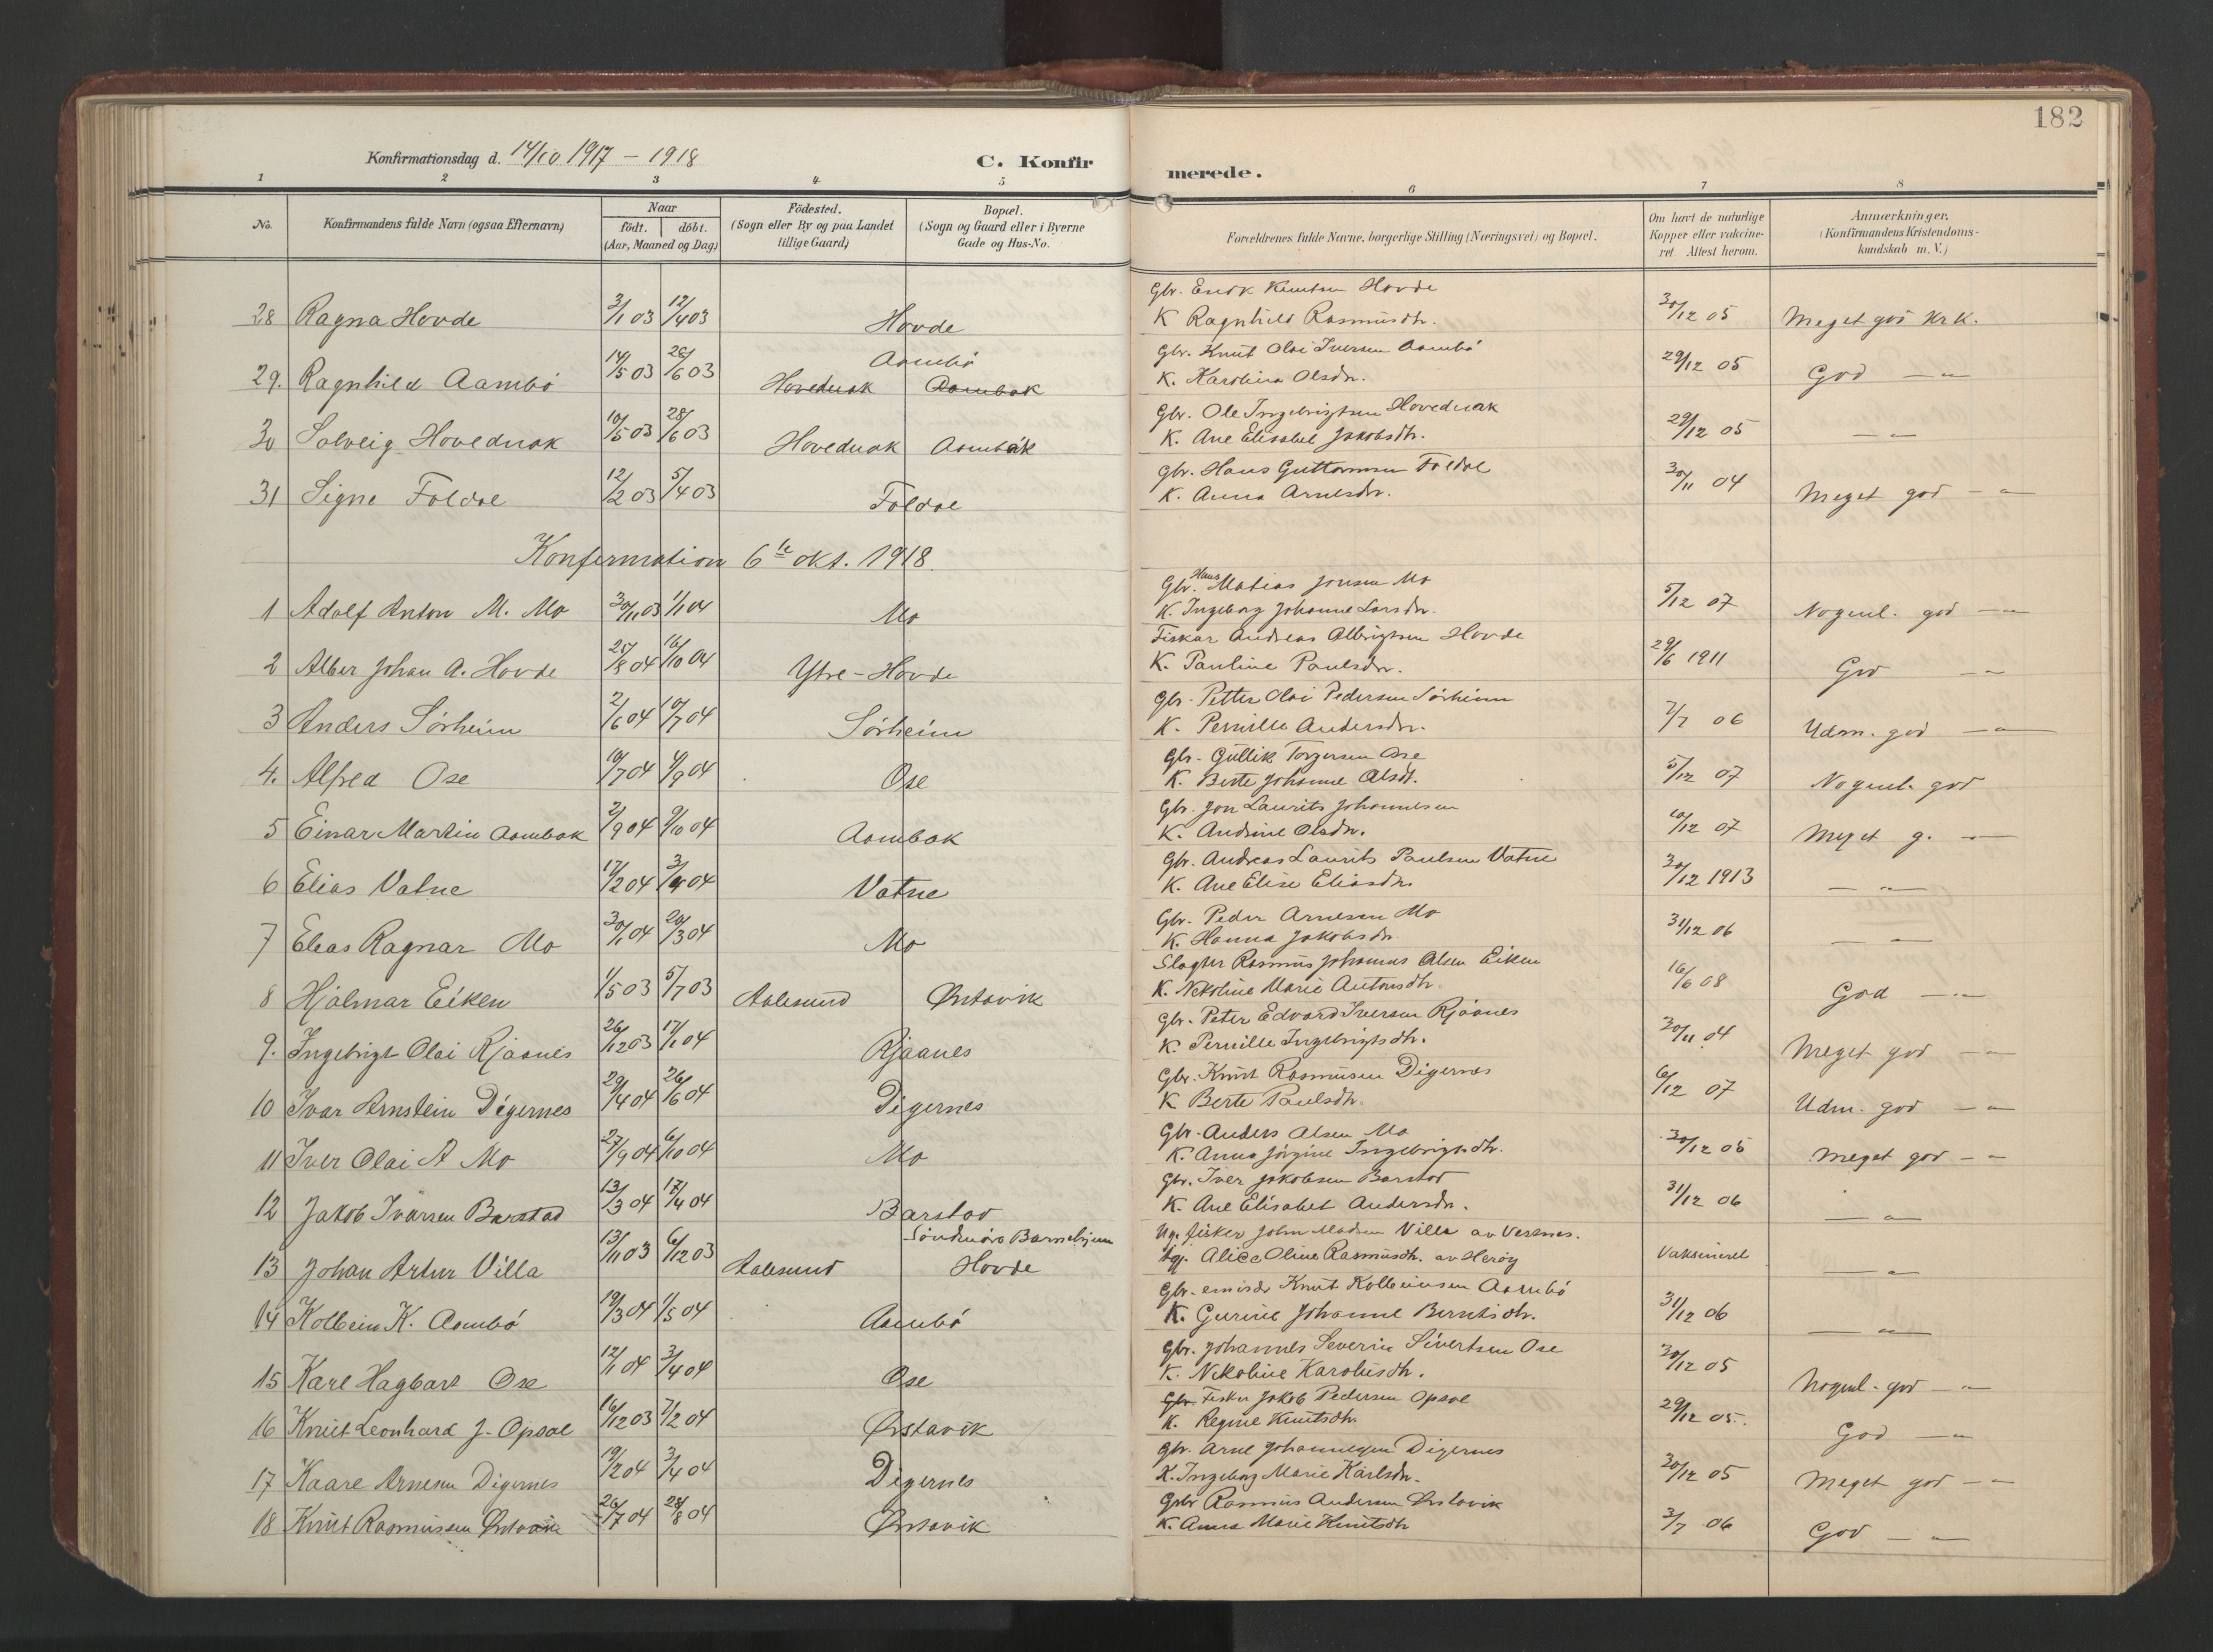 182
Konfirmationsdag d. 14/10 1917 - 1918
C. Konfirmerede.
1 2 3 4 5 6 7 8
No.
Konfirmandens fulde Navn (ogsaa Efternavn)
Naar
födt. döbt.
(Aar, Maaned og Dag)
Födested.
(Sogn eller By og paa Landet
tillige Gaard)
Bopæl.
(Sogn og Gaard eller i Byerne
Gade og Hus-No.
Forældrenes fulde Navne, borgerlige Stilling (Næringsvei) og Bopæl.
Om havt de naturlige
Kopper eller vakcine-
ret Attest herom.
Anmærkninger.
(Konfirmandens Kristendoms-
kundskab m. V.)
Gbr. Knutsen Hovde
28 Ragna Hovde 3/1 03 12/4 03 Hovde K Ragnhild Rasmusdtr. 30/12 05 Meget god Kr K.
Aambö Gbr. Knut Olai Iversen Aambö
29. Ragnhild Aambö 14/5 03 28/6 03 Hovednak Aambak K. Karolina Olsdr. 29/12 05 God — " —
Gbr. Ole Ingebrigtsen Hovednak
30 Solveig Hovednak 10/5 03 28/6 03 Hovednak Aambak K. Ane Elisabet Jakobsdtr. 29/12 05 — " —
Gbr. Hans Guttormsen Foldal
31 Signe Foldal 12/2 03 5/4 03 Foldal K. Anna Arnesdr. 30/11 04 Meget god — " —
Konfirmation 6te okt. 1918.
Gbr. Hans Matias Jonsen Mo
1 Adolf Anton M. Mo 30/11 03 1/1 04 Mo K. Ingeborg Johanne Larsdr. 5/12 07 Nogenl. god — " —
Fiskar Andreas Albrigtsen Hovde
2 Alber Johan A. Hovde 25/8 04 16/10 04 Ytre-Hovde K. Pauline Paulsdr. 29/6 1911 God — " —
Gbr. Petter Olai Pedersen Sörheim
3 Anders Sörheim 2/6 04 10/7 04 Sörheim K. Pernille Andersdr. 7/7 06 Udm. god — " —
Gbr. Gullik Torgersen Ose
4. Alfred Ose 10/7 04 4/9 04 Ose K. Berte Johanne Olsdt. 5/12 07 Nogenl. god
Gbr. Jon Laurits Johannesen
5 Einar Martin Aambak 2/9 04 9/10 04 Aambak K. Andrine Olsdr. 10/12 07 Meget g. — " —
Gbr. Andreas Laurits Paulsen Vatne
6 Elias Vatne 17/2 04 3/4 04 Vatne K. Ane Elise Eliasdr. 30/12 1913 — " —
Gbr. Peder Arnesen Mo
7 Elias Ragnar Mo 30/1 04 20/3 04 Mo K. Hanna Jakobsdr. 31/12 06 — " —
Slagter Rasmus Johannes Olsen Eiken
8 Hjalmar Eiken 1/5 03 5/7 03 Aalesund Ørstavik K. Nikoline Marie Antonsdtr. 16/6 08 God — " —
Gbr. Peter Edvard Iversen Rjaanes
9. Ingebrigt Olai Rjaanes 26/12 03 17/1 04 Rjaanes K. Pernille Ingebrigtsdtr. 30/11 04 Meget god — " —
Gbr. Knut Rasmusen Digernes
10 Ivar Arnstein Digernes 29/4 04 26/6 04 Digernes K Berte Paulsdtr. 6/12 07 Udm. god — " —
Gbr. Anders Olsen Mo
11 Iver Olai A Mo 27/9 04 6/10 04 Mo K. Anna Jörgine Ingebrigtsdtr. 30/12 05 Meget god — " —
Gbr. Iver Jakobsen Barstad
12 Jakob Ivarsen Barstad 13/3 04 17/4 04 Barstad K. Ane Elisabet Andersdr. 31/12 06 — " —
Söndmöre Barnehjem Ug. fisker John Madsen Villa av Vesnes.
13 Johan Artur Villa 13/11 03 6/12 03 Aalesund Hovde Pg. Alice Oline Rasmusdtr. av Heröy Vaksineret — " —
Gbr. Knut Kolbeinsen Aambö
14 Kolbein K. Aambö 19/3 04 1/5 04 Aambö K. Gurine Johanne Berntsdtr. 31/12 06 — " —
Gbr. Johannes Severin Sivertsen Ose
15 Kare Hagbart Ose 12/1 04 3/4 04 Ose K. Nikoline Karolusdtr. 30/12 05 Nogenl. god — " —
Gbr. Fisker Jakob Pedersen Opsal
16 Knut Leonhard J. Opsal 16/12 03 7/2 04 Ørstavik K. Regine Knutsdtr. 29/12 05. God — " —
Gbr. Arne Johannesen Digernes
17 Kaare Arnesen Digernes 19/2 04 3/4 04 Digernes K. Ingeborg Marie Karlsdr. 30/12 05 Meget god — " —
Gbr Rasmus Andersen Ørstavik
18 Knut Rasmussen Ørstavik 26/7 04 28/8 04 Ørstavik K. Anna Marie Knutsdtr 3/7 06 God — " —